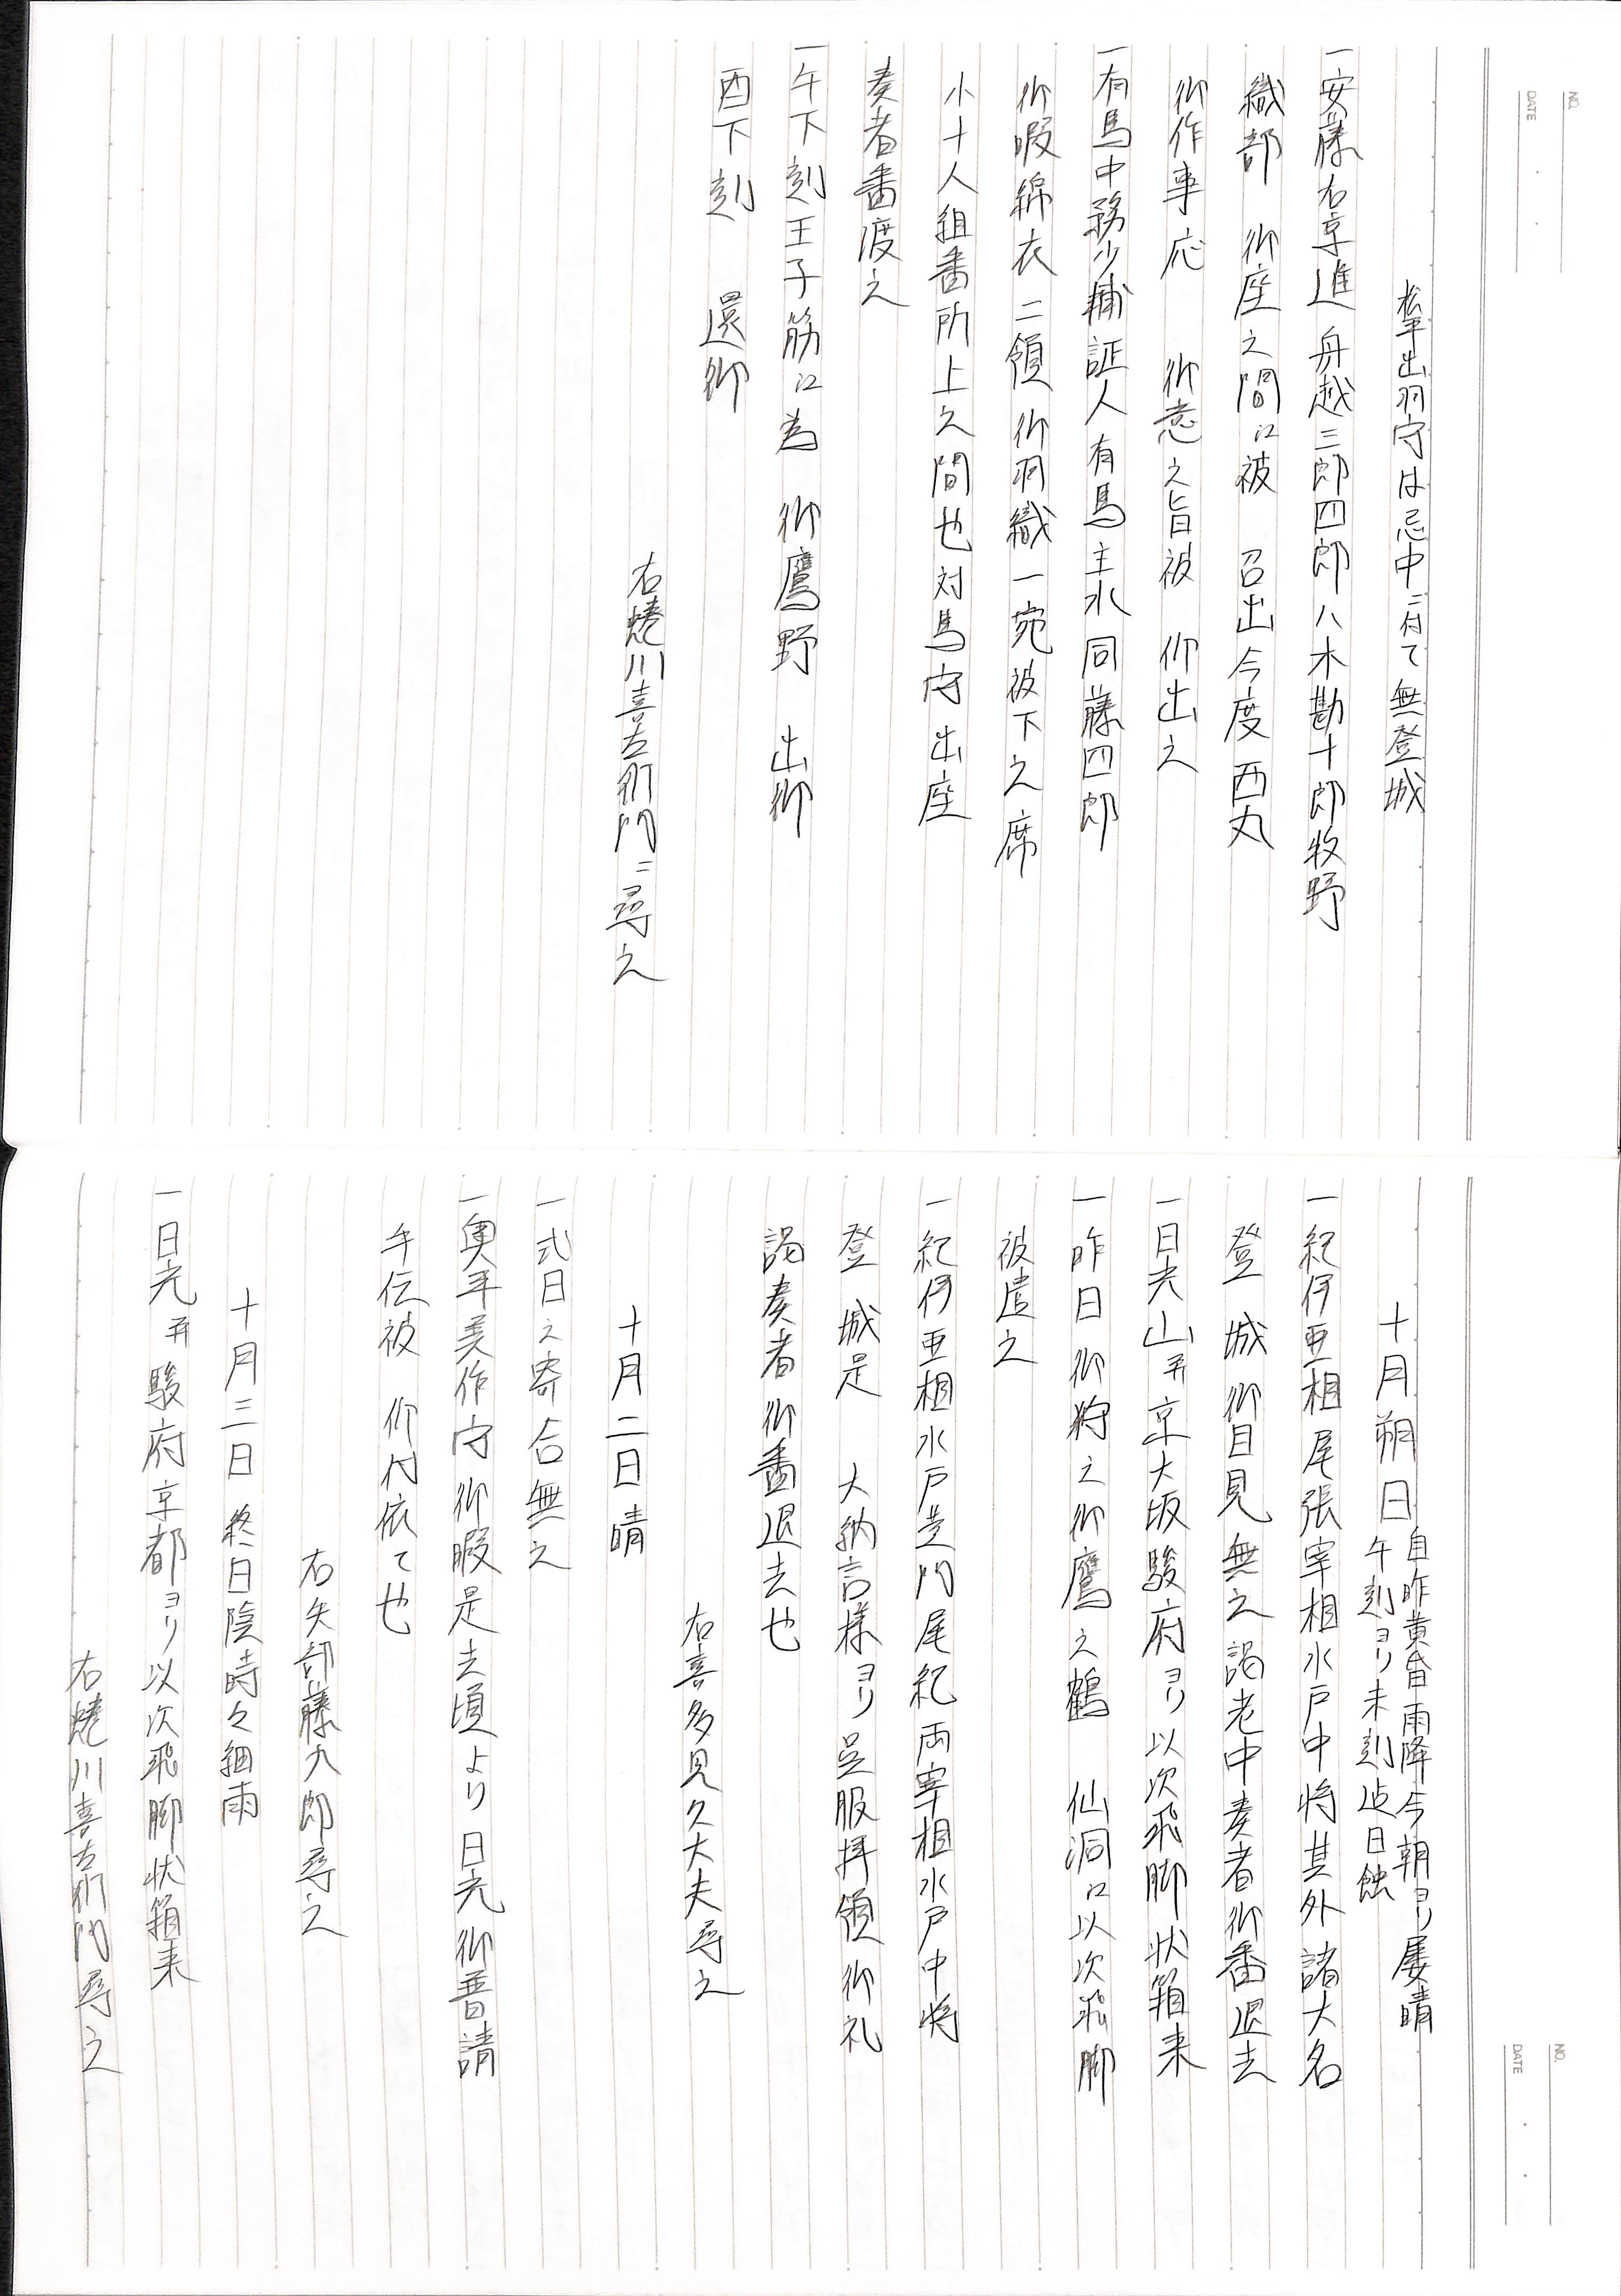 松平出羽守は忌中ニ付て無登城
一安藤右京進舟越三郎四郎八木勘十郎牧野
織部 御座之間江被 召出今度西丸
御作事応 御意之旨被 仰出之
一有馬中務少輔証人有馬主水同藤四郎
御暇綿衣二領御羽織一宛被下之席
小十人組番所上之間也対馬守出座
奏者番渡之
一午下刻王子筋江為 御鷹野 出御
酉下刻 還御
右蜷川喜左衛門ニ尋之
NO.
DATE
十月朔日 自昨黄昏雨降今朝ヨリ屡晴
午刻ヨリ未刻迠日蝕
一紀伊亜相尾張宰相水戸中将其外諸大名
登 城御目見無之謁老中奏者御番退去
一日光山并京大坂駿府ヨリ以次飛脚状箱来
一昨日御狩之御鷹之鶴 仙洞江以次飛脚
被遣之
一紀伊亜相水戸黄門尾紀両宰相水戸中将
登 城是 大納言様ヨリ呉服拝領御礼
謁奏者御番退去也
右喜多見久大夫尋之
十月二日 晴
一式日之寄合無之
一奥平美作守御暇是去頃より日光御普請
手伝被 仰付依て也
右矢部藤九郎尋之
十月三日 終日陰時々細雨
一日光并駿府京都ヨリ以次飛脚状箱来
右蜷川喜左衛門尋之
NO.
DATE